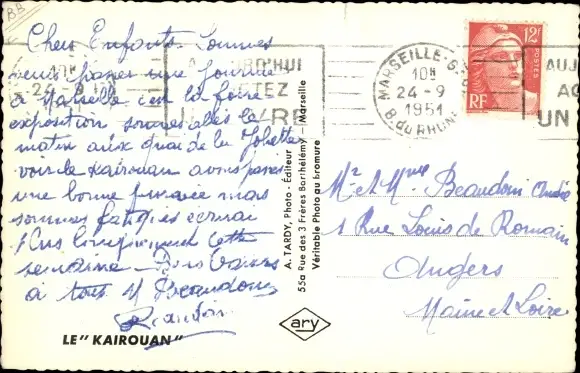 BB
Chers Enfants. Sommes
venus passer une journée
à Marseille c'est la foire
exposition sommes allés le
matin aux quai de la Joliette
voir le Kairouan avons passé
une bonne journée mais
sommes fatigués
Plus longuement cette
semaine Bons Baisers
à tous M Beaudoin
Beaudoin
LE "KAIROUAN"
A. TARDY, Photo - Éditeur
55a Rue des 3 Frères Barthélémy - Marseille
Véritable Photo au bromure
ary
MARSEILLE-G
10H
24-9
1951
B. du RHONE
12F
POSTES
RF
AUJ
AC
UN
Mr et Mme Beaudoin André
1 Rue Louis de Romain
Angers
Maine et Loire